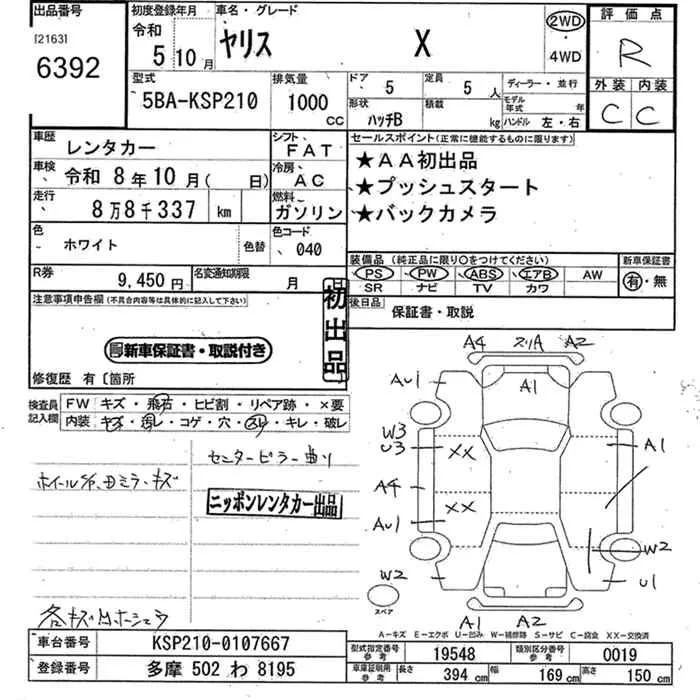 出品番号
[2163]
6392
初度登録年月
令和
5 10月
車名・グレード
ヤリス X
2WD
4WD
評価点
R
外装 内装
C C
型式
5BA-KSP210
排気量
1000
CC
ドア
5
定員
5
人
形状
ハッチB
積載
kg
ディーラー・並行
モデル年式
年
ハンドル 左・右
車歴
レンタカー
シフト
FAT
車検
令和 8年10月( 日)
冷房
AC
走行
8万8千337 km
燃料
ガソリン
色
ホワイト
色替
色コード
040
R券
9,450円
名変通知期限
月 日
セールスポイント(正常に機能するものに限ります)
★AA初出品
★プッシュスタート
★バックカメラ
装備品(純正品に限り○をつけてください)
PS PW ABS エアB AW
SR ナビ TV カワ
新車保証書
有・無
後日品
保証書・取説
注意事項申告欄(不具合内容等は具体的に記入して下さい)
初出品
新車保証書・取説付き
修復歴 有〔箇所
検査員記入欄
FW キズ・飛石・ヒビ割・リペア跡・×要
内装 キズ・汚レ・コゲ・穴・スレ・キレ・破レ
センターピラー曲り
ニッポンレンタカー出品
A4 A2
AU1 A1
W3
U3 XX A1
A4
AU1 XX
W2 W2
U1
スペア
A1 A2
A-キズ E-エクボ U-凹み W-補修跡 S-サビ C-腐食 XX-交換済
車台番号 KSP210-0107667
登録番号 多摩 502 わ 8195
型式指定番号 参考 19548
類別区分番号 参考 0019
車庫証明用 参考 長さ 394 cm 幅 169 cm 高さ 150 cm